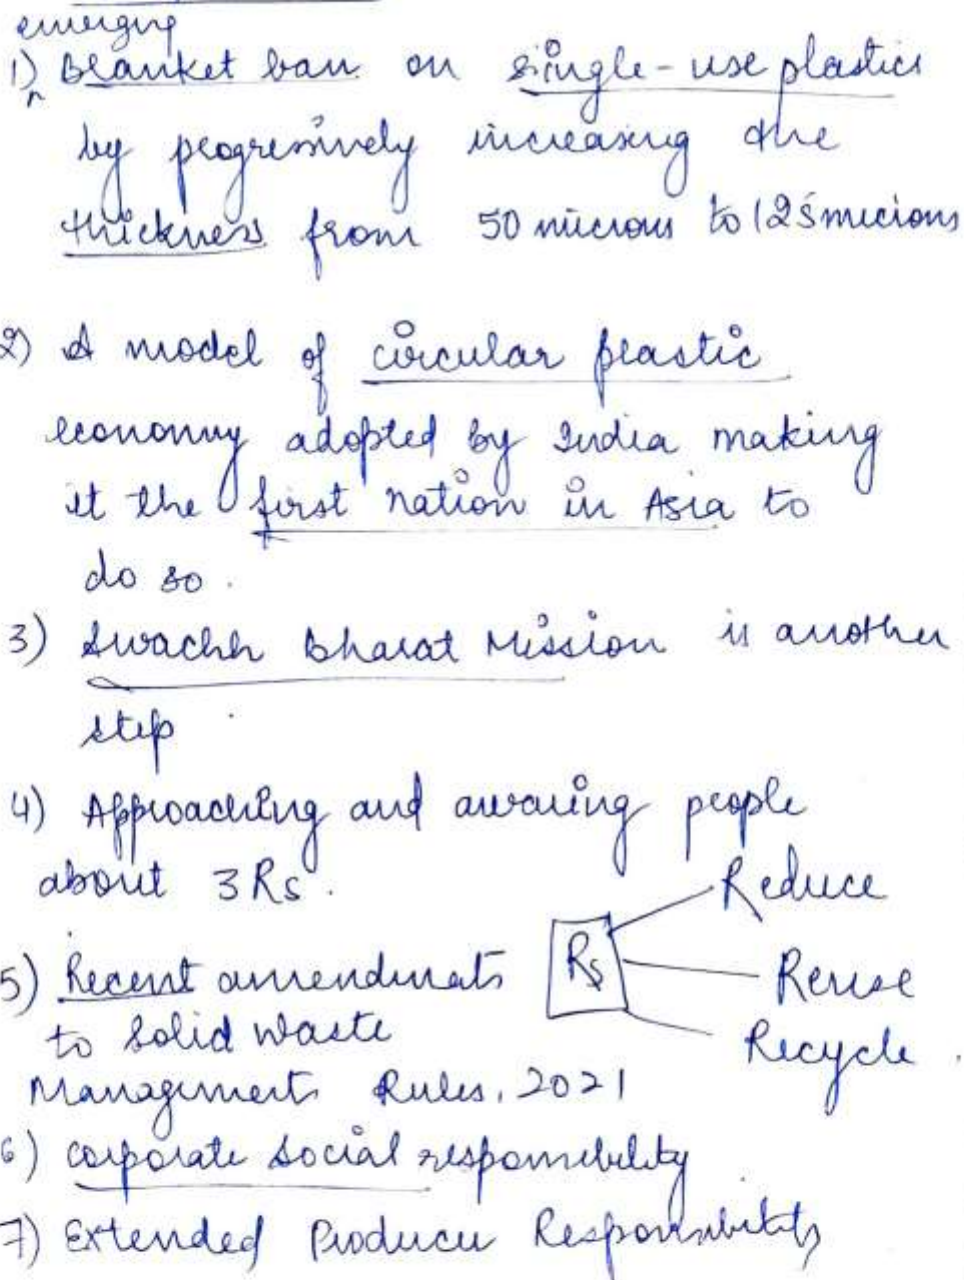 emerging
1) Blanket ban on single-use plastics
by progressively increasing the
thickness from 50 microns to 125 microns
2) A model of circular plastic
economy adopted by India making
it the first nation in Asia to
do so.
3) Swachh Bharat Mission is another
step
4) Approaching and awaring people
about 3Rs.
Reduce
5) Recent amendments
Rs
Reuse
to Solid Waste
Recycle.
Management Rules, 2021
6) Corporate Social responsibility
7) Extended Producer Responsibility